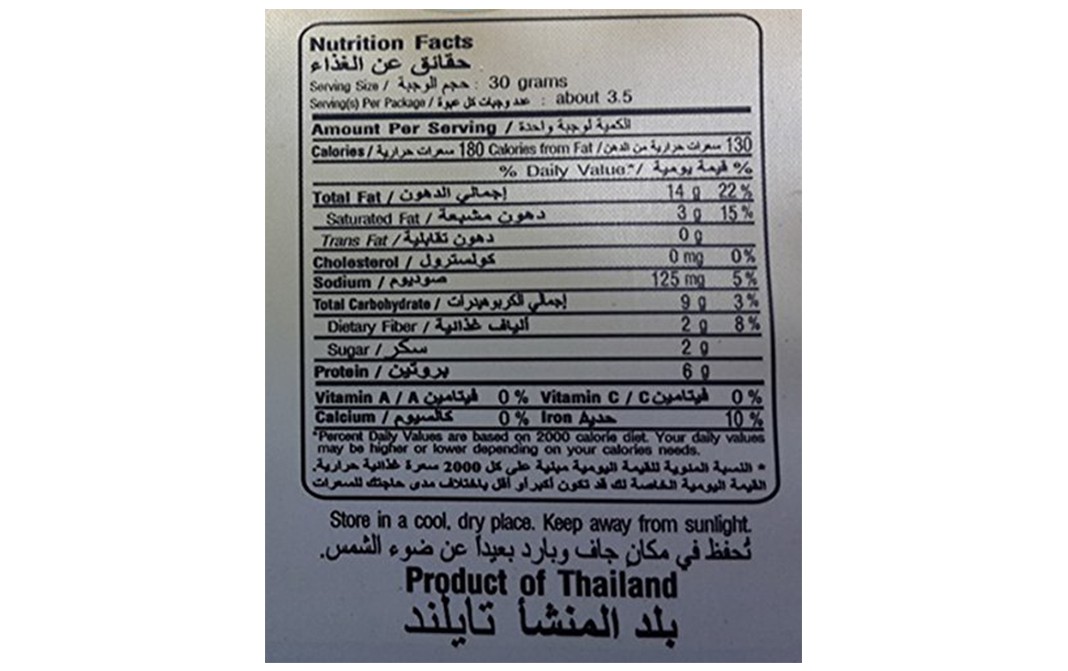 Nutrition Facts
حقائق عن الغذاء
Serving Size / حجم الوجبة : 30 grams
Serving(s) Per Package / عدد وجبات كل عبوة : about 3.5
Amount Per Serving / الكمية لوجبة واحدة
Calories / سعرات حرارية 180 Calories from Fat / سعرات حرارية من الدهن 130
% Daily Value*/ قيمة يومية %
Total Fat / إجمالي الدهون 14 g 22%
Saturated Fat / دهون مشبعة 3 g 15%
Trans Fat / دهون تقابلية 0 g
Cholesterol / كولسترول 0 mg 0%
Sodium / صوديوم 125 mg 5%
Total Carbohydrate / إجمالي الكربوهيدرات 9 g 3%
Dietary Fiber / ألياف غذائية 2 g 8%
Sugar / سكر 2 g
Protein / بروتين 6 g
Vitamin A / A فيتامين 0% Vitamin C / C فيتامين 0%
Calcium / كالسيوم 0% Iron حدية 10%
*Percent Daily Values are based on 2000 calorie diet. Your daily values
may be higher or lower depending on your calories needs.
* النسبة المئوية للقيمة اليومية مبنية على كل 2000 سعرة غذائية حرارية.
القيمة اليومية الخاصة لك قد تكون أكبر أو أقل باختلاف مدى حاجتك للسعرات
Store in a cool, dry place. Keep away from sunlight.
تُحفظ في مكانٍ جاف وبارد بعيداً عن ضوء الشمس.
Product of Thailand
بلد المنشأ تايلند